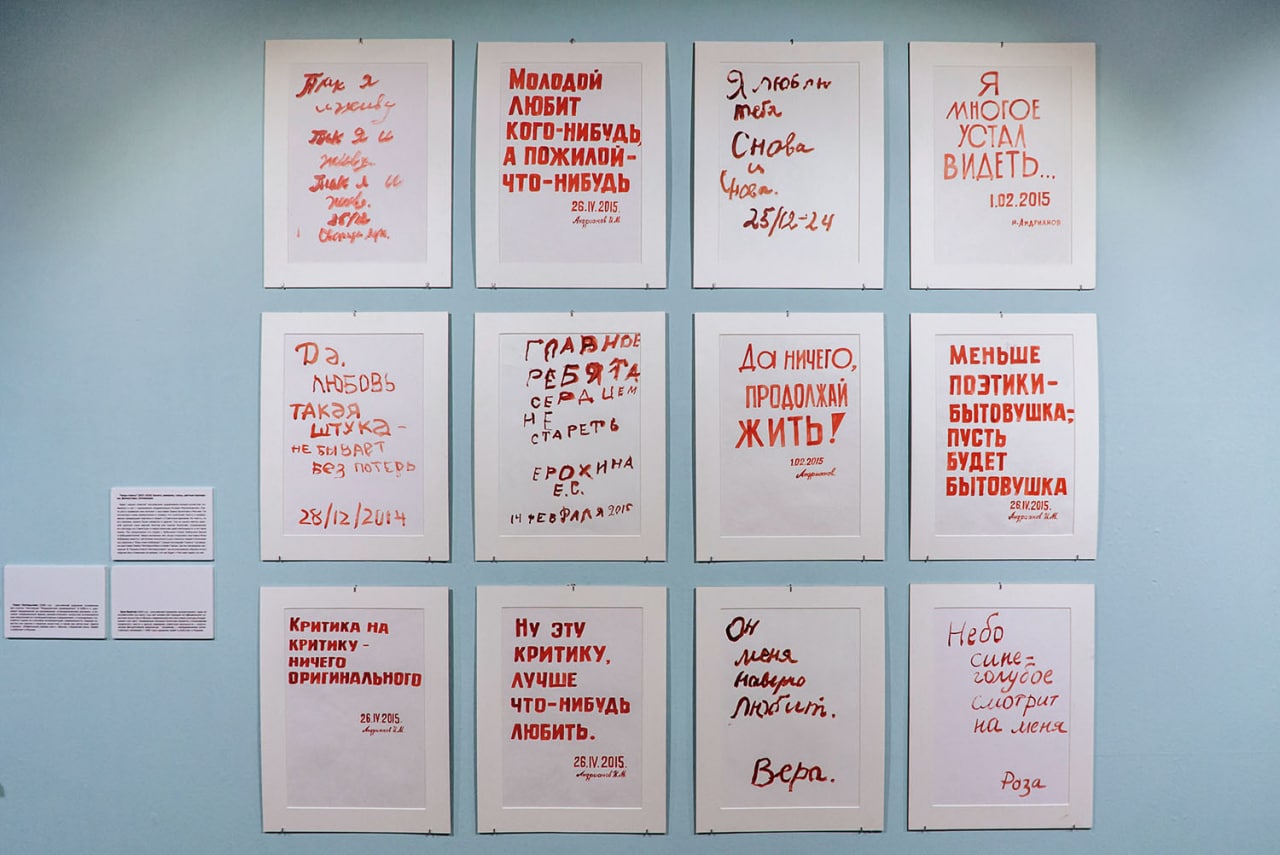 Так я
и живу
Так я и
живу.
Так я и
живу.
25/12
Молодой
любит
кого-нибудь,
а пожилой-
что-нибудь
26.IV.2015.
Андрианов И.М.
Я люблю
тебя
Снова
и
Снова.
25/12-24
Я
много́е
устал
видеть...
1.02.2015
И.Андрианов
Да.
Любовь
такая
штука-
не бывает
без потерь
28/12/2014
Главное
ребята
сердцем
не
стареть
Ерохина
Е.С.
14 февраля 2015
Да ничего,
продолжай
жить!
1.02.2015
Андрианов
Меньше
поэтики-
бытовушка;
пусть
будет
бытовушка
26.IV.2015.
Андрианов И.М.
Критика на
критику-
ничего
оригинального
26.IV.2015.
Андрианов И.М.
Ну эту
критику,
лучше
что-нибудь
любить.
26.IV.2015.
Андрианов И.М.
Он
меня
наверно
Любит.
Вера.
Небо
сине-
голубое
смотрит
на меня
Роза